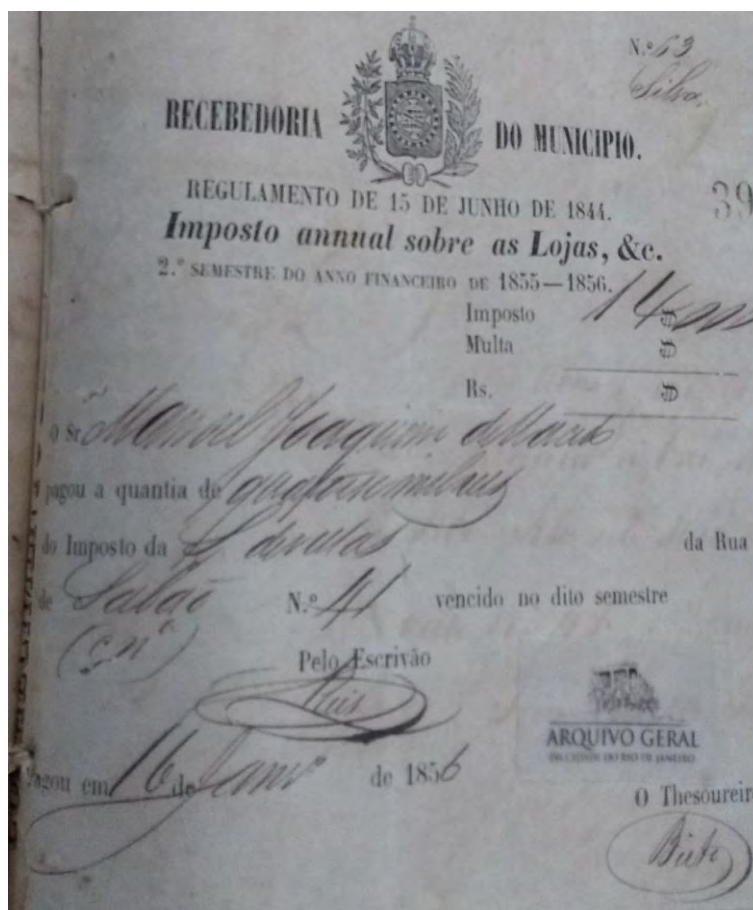 N.º 63
Silva.
RECEBEDORIA DO MUNICIPIO.
REGULAMENTO DE 15 DE JUNHO DE 1844.
39
Imposto annual sobre as Lojas, &c.
2.º SEMESTRE DO ANNO FINANCEIRO DE 1855—1856.
Imposto 14$
Multa $
Rs. $
O Sr. Manoel Joaquim
pagou a quantia de quatorze mil reis
do Imposto da da Rua
de N.º 41 vencido no dito semestre
Pelo Escrivão
Pagou em 16 de Janrº de 1856
ARQUIVO GERAL
DA CIDADE DO RIO DE JANEIRO
O Thesoureiro